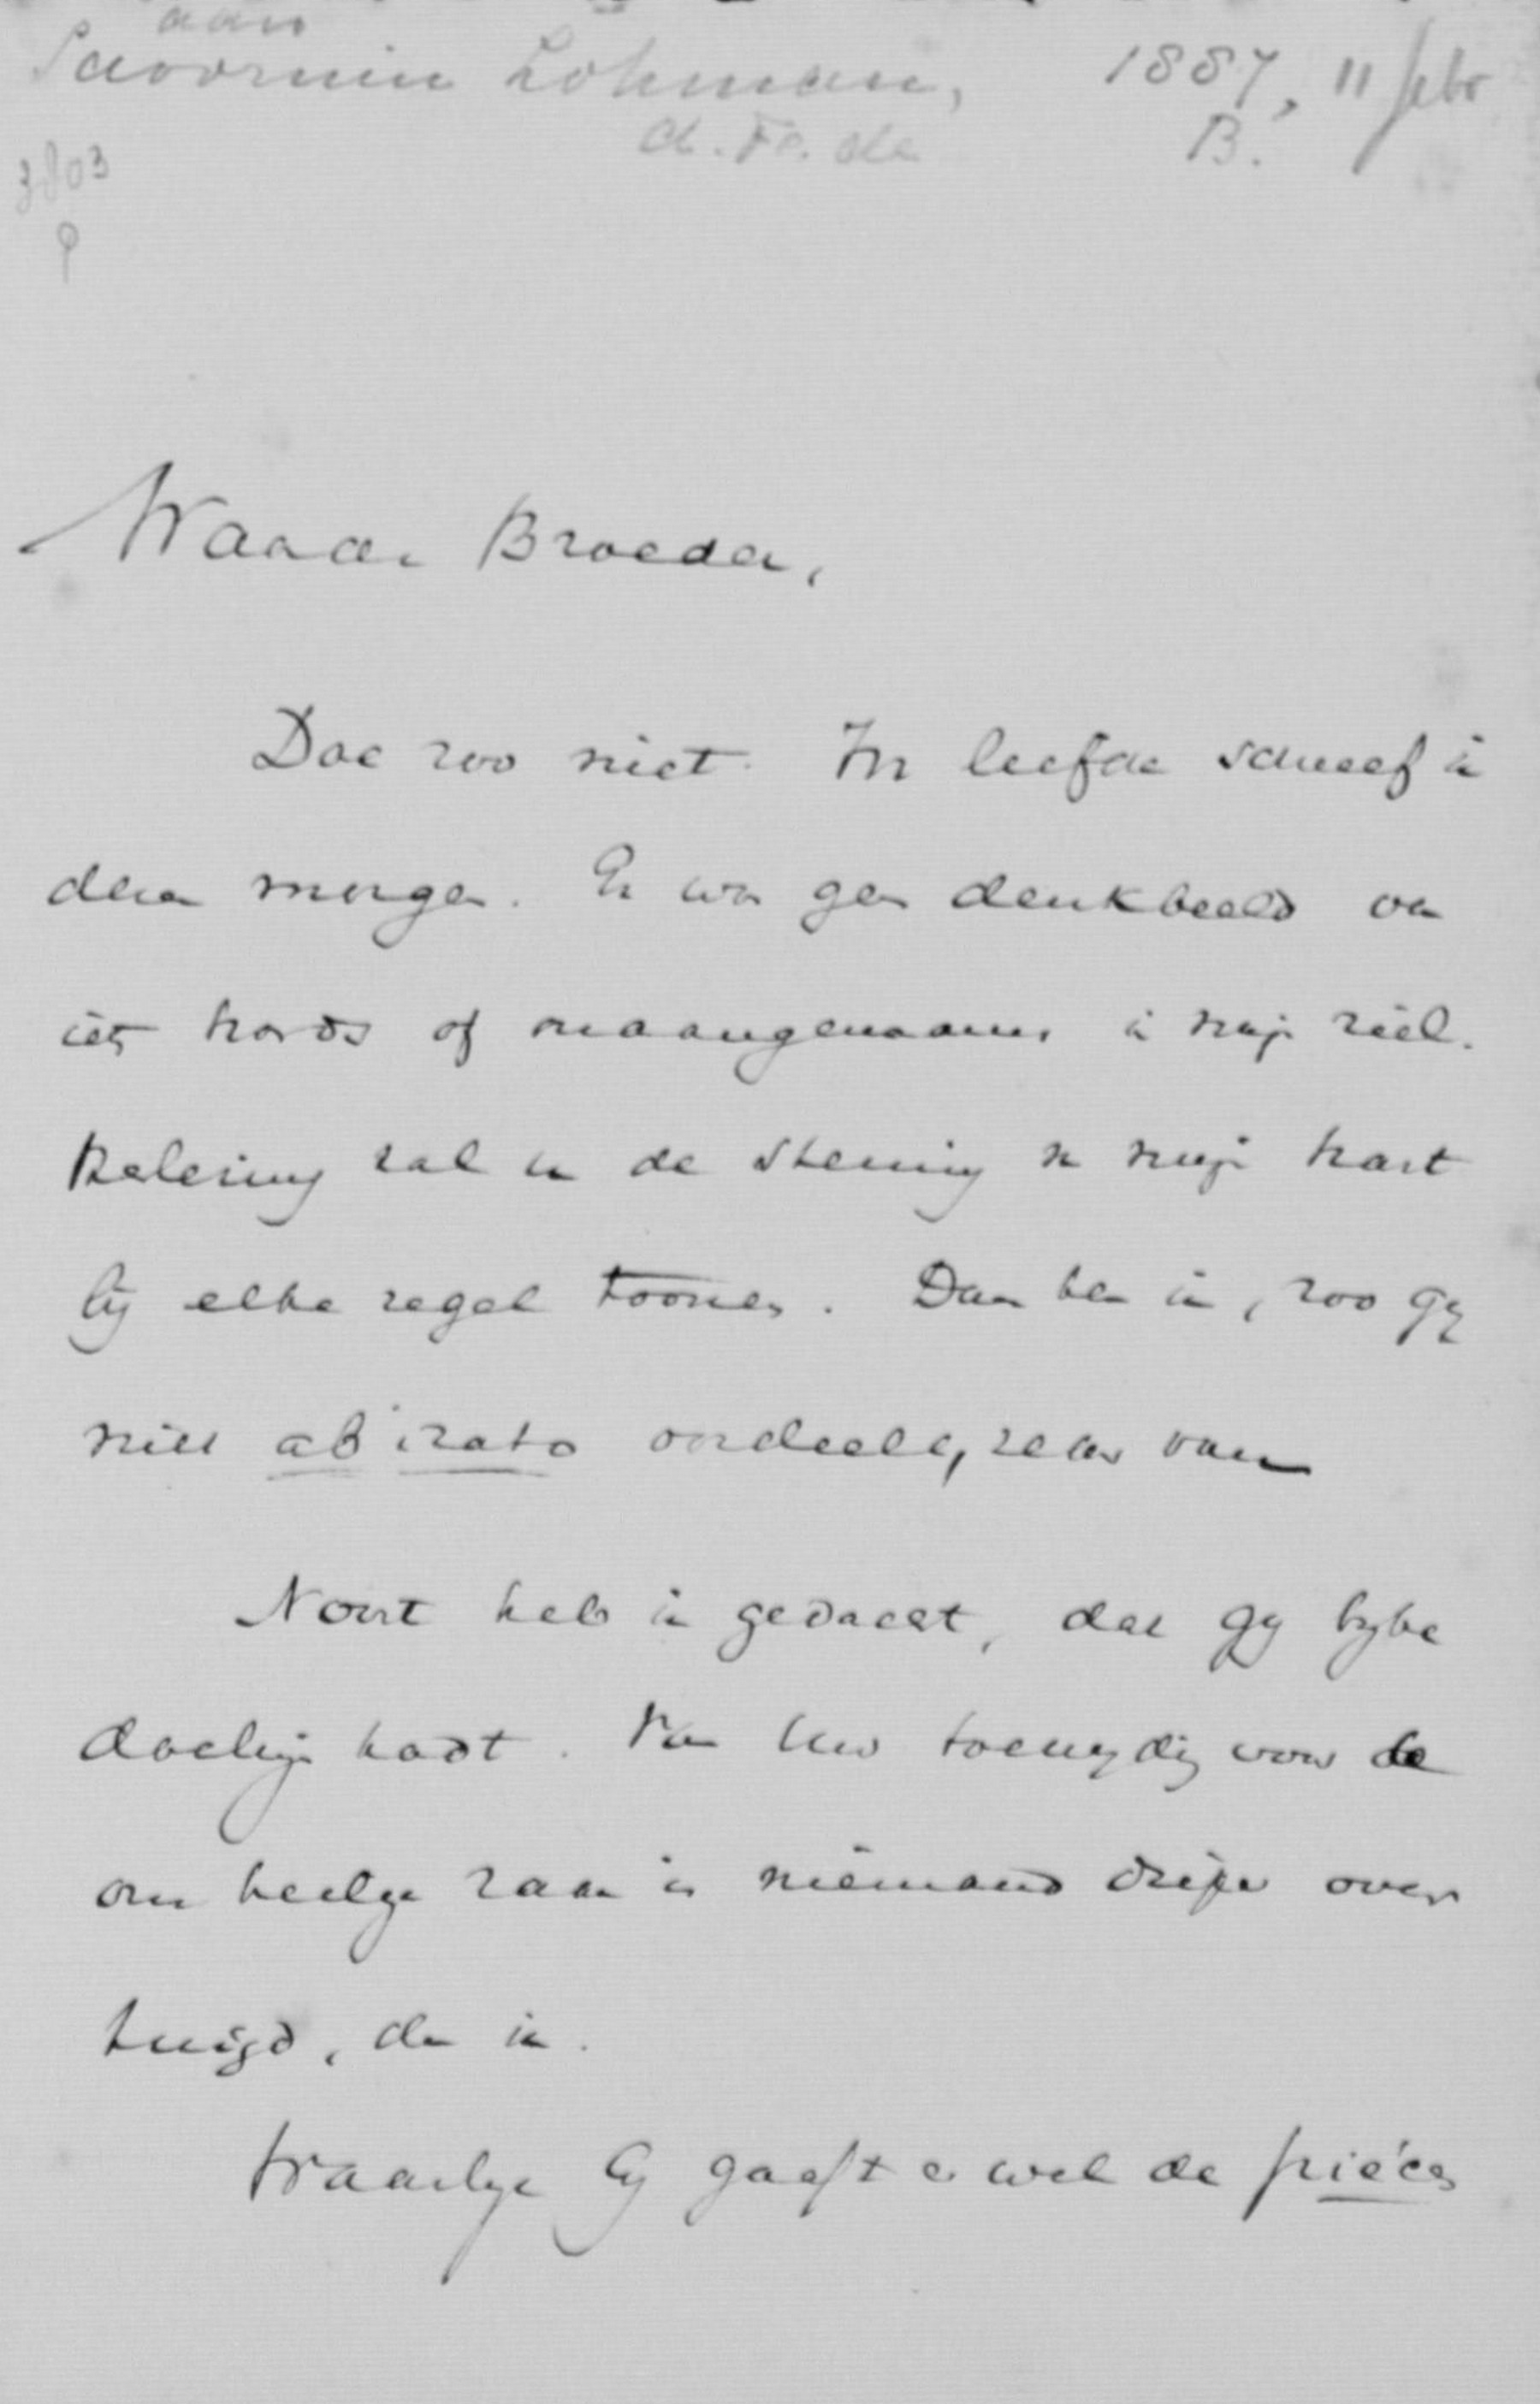 aan
Savornin Lohman, 1887, 11 febr
A. F. de B.
3803
Waarde Broeder,
Doe zoo niet. In liefde schreef ik
dezen morgen. Er was geen denkbeeld van
iets hards of onaangenaams in mijn ziel.
Relezing zal u de stemming van mijn hart
bij elken regel toonen. Dan ben ik, zoo gij
niet ab irato oordeelt, zeker van
Nooit heb ik gedacht, dat gij bijbe
doeling hadt. Van Uw toewijding voor de
onze heilige zaak is niemand dieper over
tuigd, dan ik.
Waarlijk Gij gaaft er wel de pièces